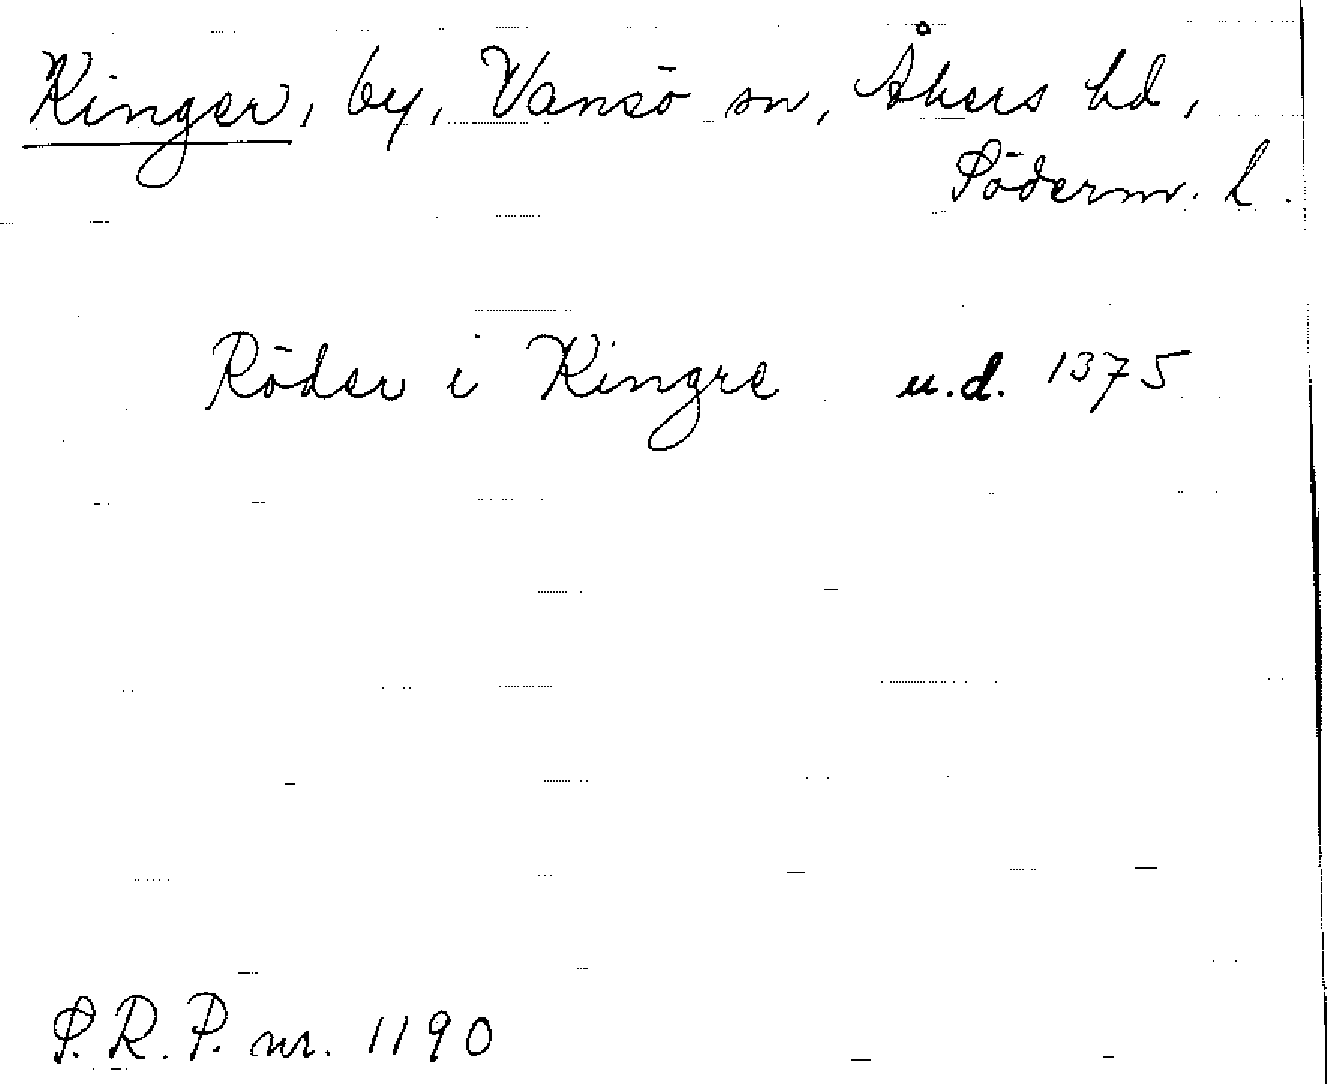 Kinger, by, Vansö sn, Åkers hd,
Söderm. l.
Röder i Kingre u.d. 1375
S.R.P. nr. 1190